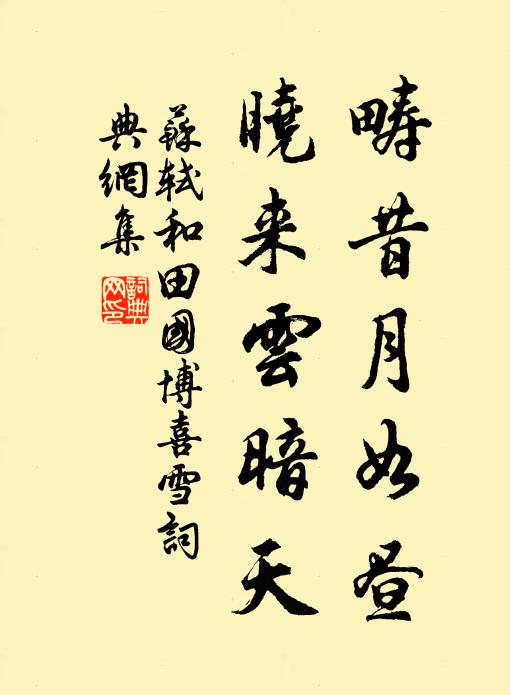 疇昔月如晝
曉来雲暗天
蘇軾和田國博喜雪詞
典網集
詞典网印